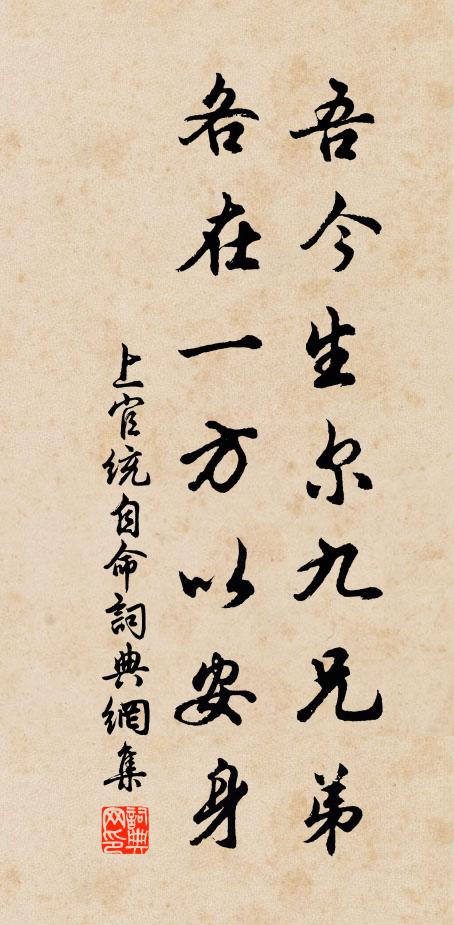 吾今生尔九兄弟
各在一方以安身
上官统自命詞典網集
詞典
网印